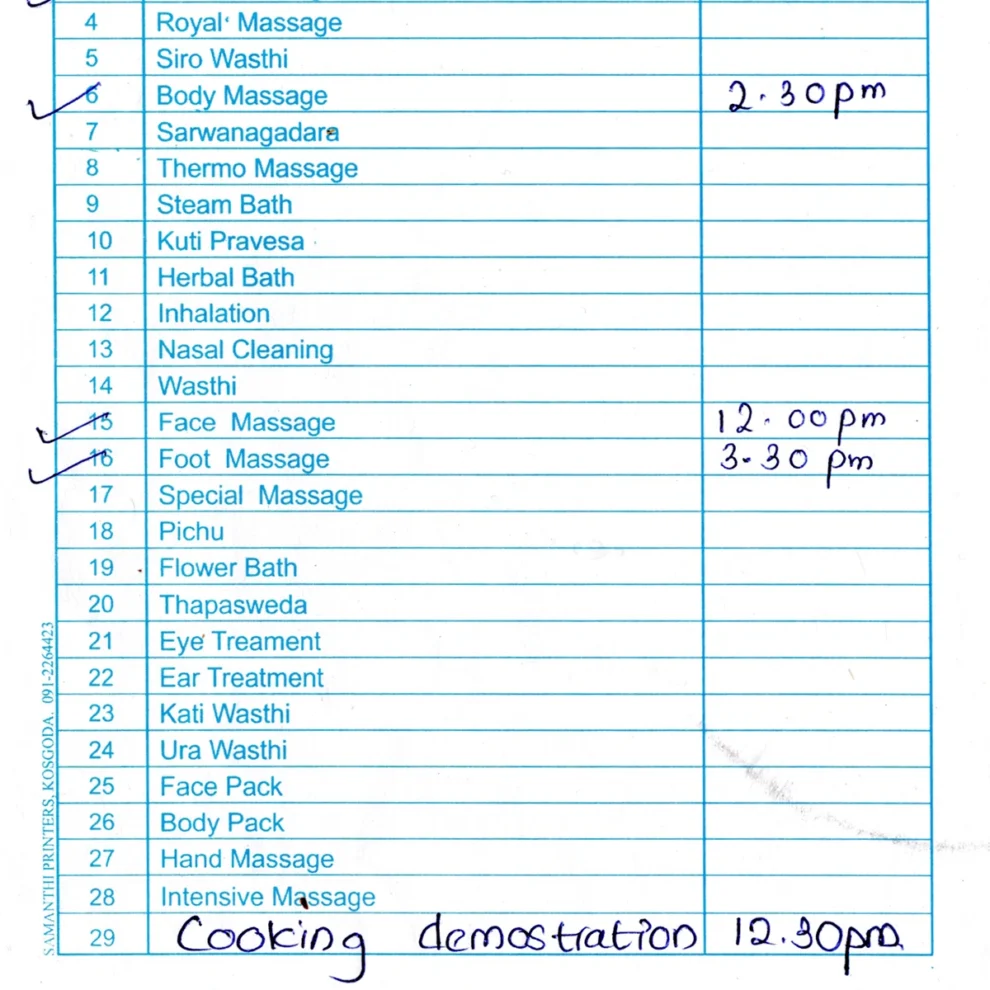 4 Royal Massage
5 Siro Wasthi
6 Body Massage 2.30pm
7 Sarwanagadara
8 Thermo Massage
9 Steam Bath
10 Kuti Pravesa
11 Herbal Bath
12 Inhalation
13 Nasal Cleaning
14 Wasthi
15 Face Massage 12.00pm
16 Foot Massage 3.30 pm
17 Special Massage
18 Pichu
19 Flower Bath
20 Thapasweda
21 Eye Treament
22 Ear Treatment
23 Kati Wasthi
24 Ura Wasthi
25 Face Pack
26 Body Pack
27 Hand Massage
28 Intensive Massage
29 Cooking demostration 12.30pm
SAMANTHI PRINTERS, KOSGODA. 091-2264423